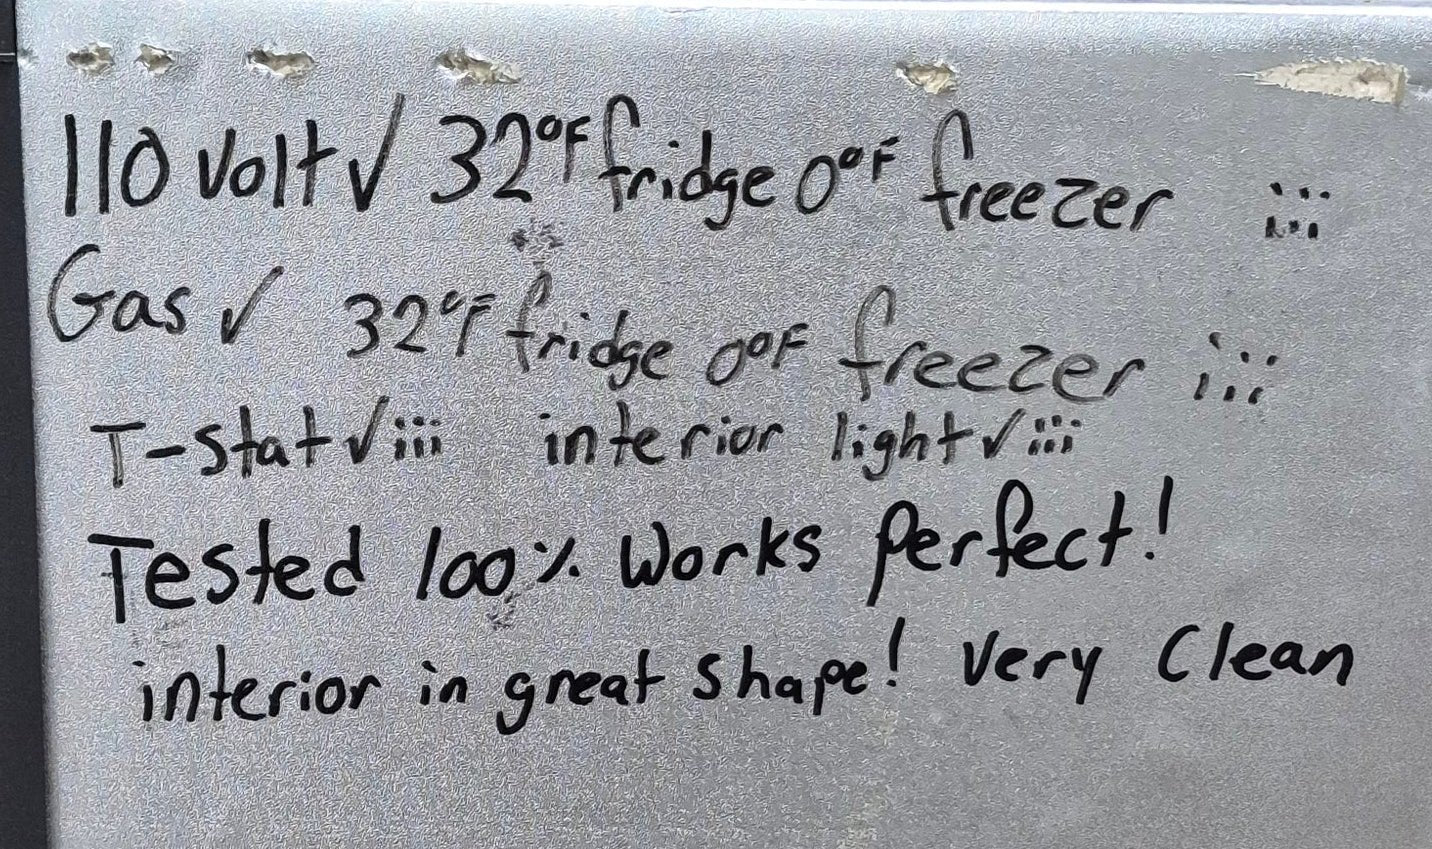 110 Volt√ 32°F fridge 0°F freezer iii
Gas √ 32°F fridge 0°F freezer iii
T-stat √ iii interior light √ iii
Tested 100% Works Perfect!
interior in great shape! Very Clean